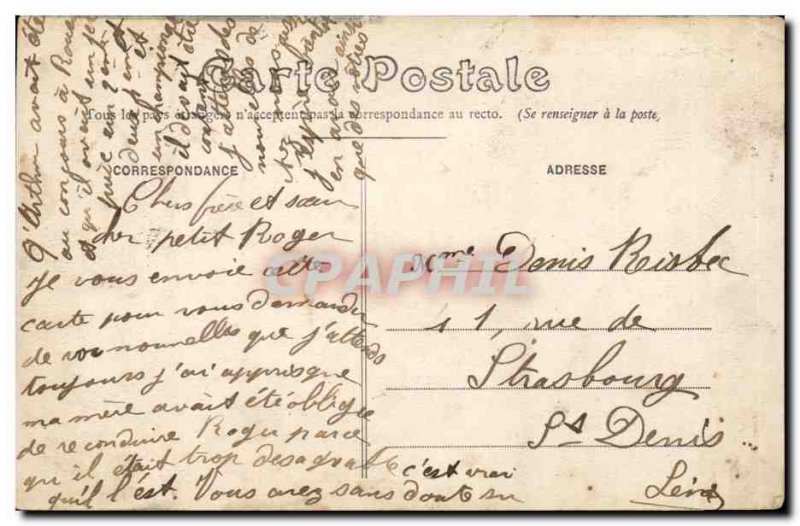 Carte Postale
Tous les pays étrangers n'acceptent pas la correspondance au recto. (Se renseigner à la poste)
CORRESPONDANCE
ADRESSE
Chers frère et sœur
cher petit Roger
Je vous envoie cette
carte pour vous demander
de vos nouvelles que j'attends
toujours j'ai appris que
ma mère avait été obligé
de reconduire Roger parce
qu'il était trop désagréable c'est vrai
qu'il l'est. Vous avez sans doute su
q'Arthur avait été
au concours à Rouen
et qu'il avait un
deux et
un championna
il devait être
content
j'attends des
nouvelles de
en avoir
que des vôtres
Mme Denis Risbec
11, rue de
Strasbourg
St Denis
Seine
CPAPHIL